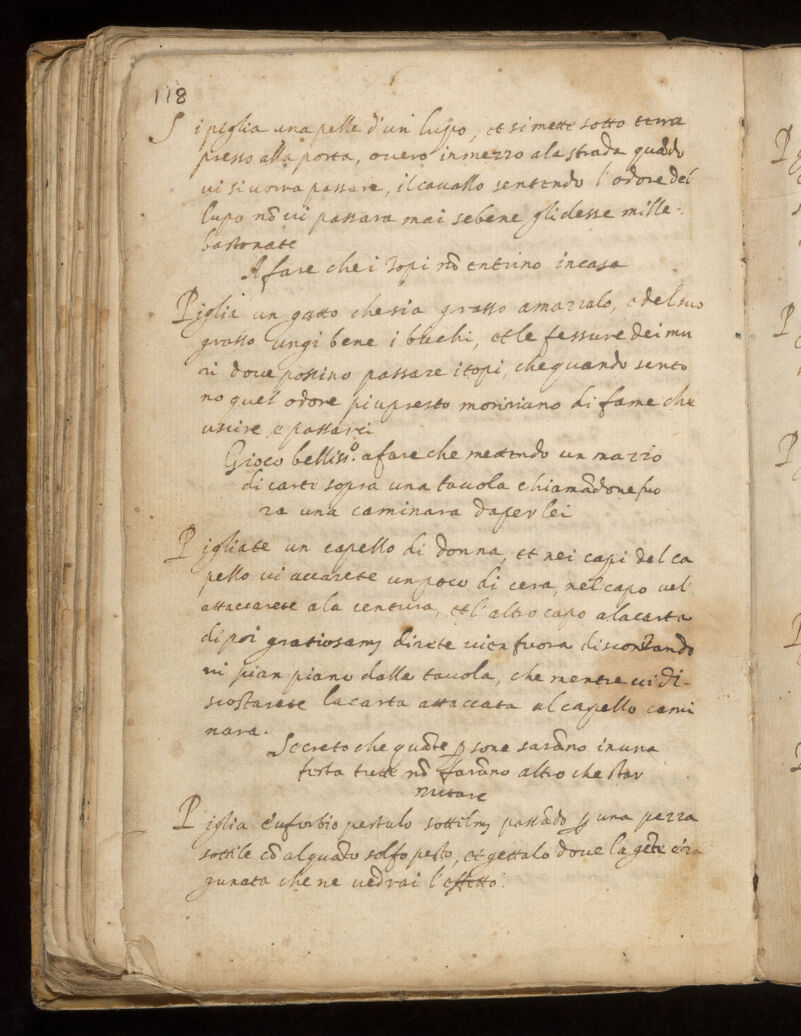 118
Si piglia una pelle d'un lupo, et si mette sotto terra
presso alla porta, overo in mezzo a la strada quãdo
vi si vorra passare, il cavallo sentendo l'odore del
lupo nõ vi passara mai se bene gli desse mille
bastonate
A fare che i Topi nõ entrino in casa
Piglia un gatto che sia grasso amazzalo, e del suo
grasso ungi bene i buchi, et le fessure dei mu
ri dove possino passare i topi, che quando sento
no quel odore piu presto moririano di fame che
uscire, e passarci
Gioco belliss.o a fare che mettendo un mazzo
di carte sopra una tavola chiamãdone fuo
ra una caminara da per lei
Pigliate un capello di donna, et nei capi del ca
pello vi accarete un poco di cera, nel capo vel'
attaccarete a la centura, et l'altro capo a la carta
di poi gratiosam direte vien fuora discostando
vi pian piano dalla tavola, che mentre vi di-
scostarete la carta attaccata al capello cami
nara.
Secreto che quãte psone sarãno in una
festa tutte nõ farãno altro che star
nutare
Piglia euforbio pestalo sottilm passãdo p una pezza
sottile cõ alquãto solfo pesto, et gettalo dove la gẽte e ra
gunata che ne vedrai l'effetto.